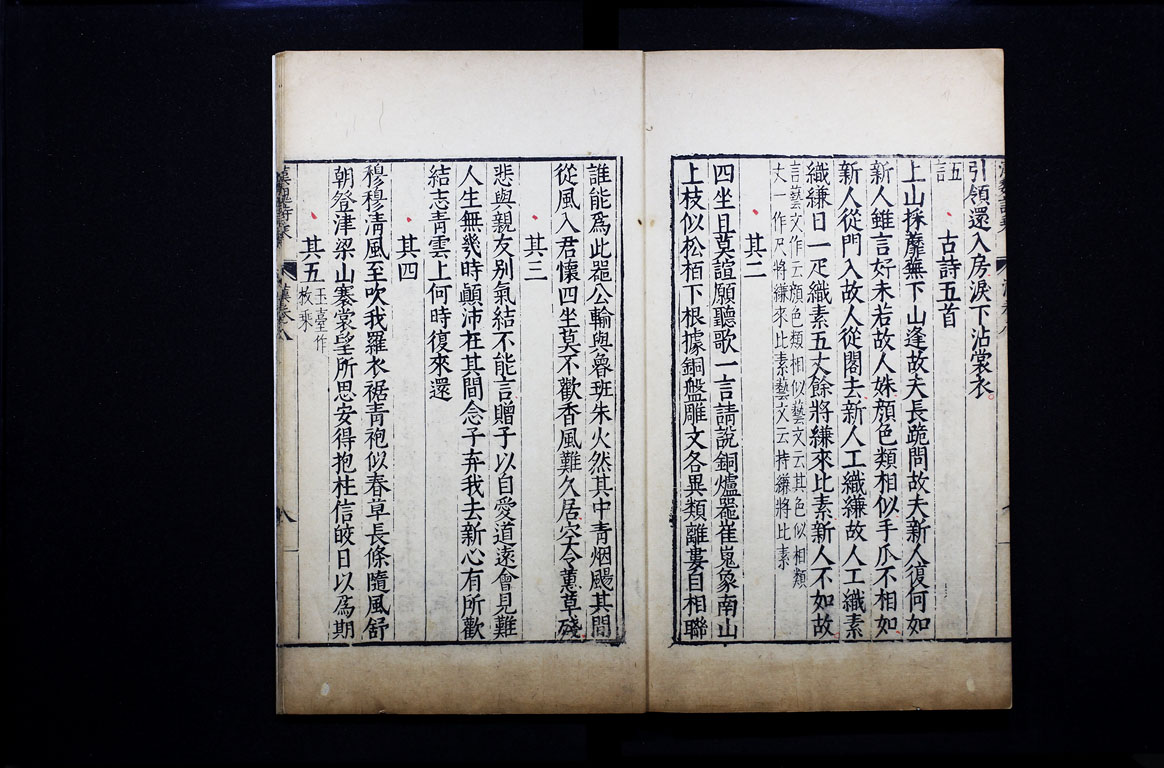 引領還入房淚下沾裳衣
五
言
古詩五首
上山採蘼蕪下山逢故夫長跪問故夫新人復何如
新人雖言好未若故人姝顏色類相似手爪不相如
新人從門入故人從閣去新人工織縑故人工織素
織縑日一疋織素五丈餘將縑來比素新人不如故
言藝文作云顏色類相似藝文云其色似相類
丈一作尺將縑來比素藝文云持縑將比素
其二
四坐且莫諠願聽歌一言請說銅爐器崔嵬象南山
上枝似松栢下根據銅盤雕文各異類離婁自相聯
誰能爲此器公輸與魯班朱火然其中青烟颺其間
從風入君懷四坐莫不歡香風難久居空令蕙草殘
其三
悲與親友别氣結不能言贈子以自愛道遠會見難
人生無幾時顚沛在其間念子弃我去新心有所歡
結志青雲上何時復來還
其四
穆穆清風至吹我羅衣裾青袍似春草長條隨風舒
朝登津梁山褰裳望所思安得抱柱信皎日以爲期
其五
玉臺作
枚乘
漢魏詩
漢卷八
八